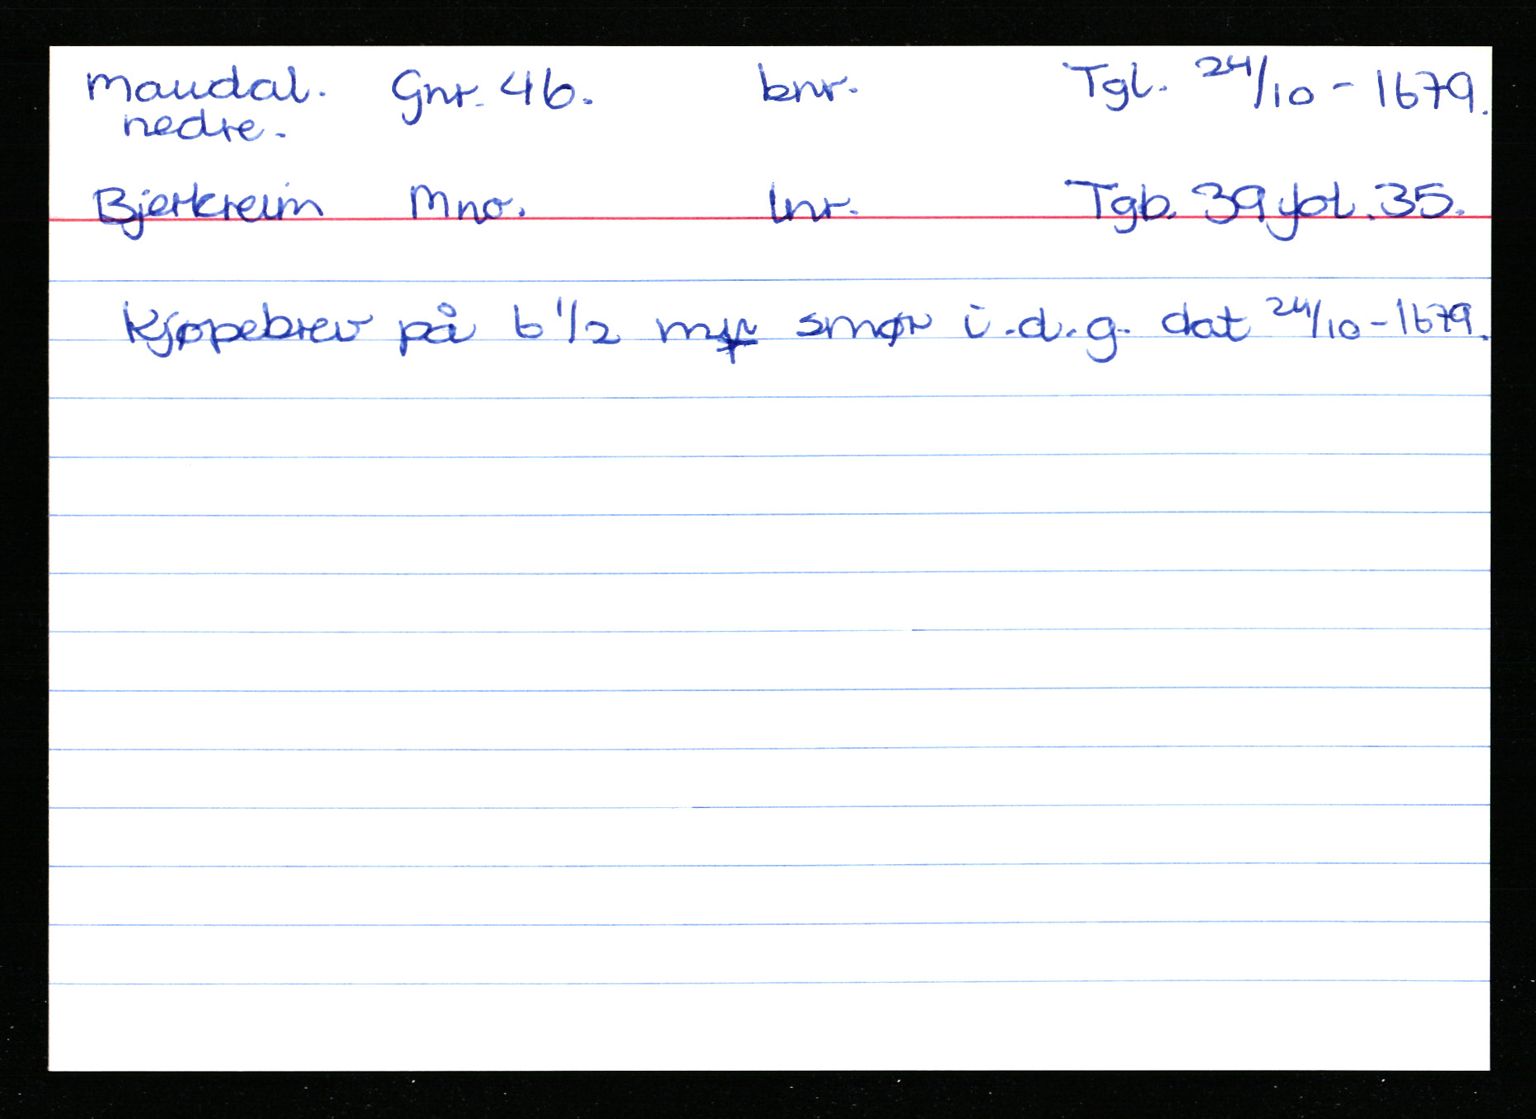 Maudal. Gnr. 46. bnr. Tgl. 24/10 - 1679.
nedre.
Bjerkreim Mno. lnr. Tgb. 39 fol. 35.
Kjøpebrev på 6 1/2 smør i.d.g. dat 24/10-1679.